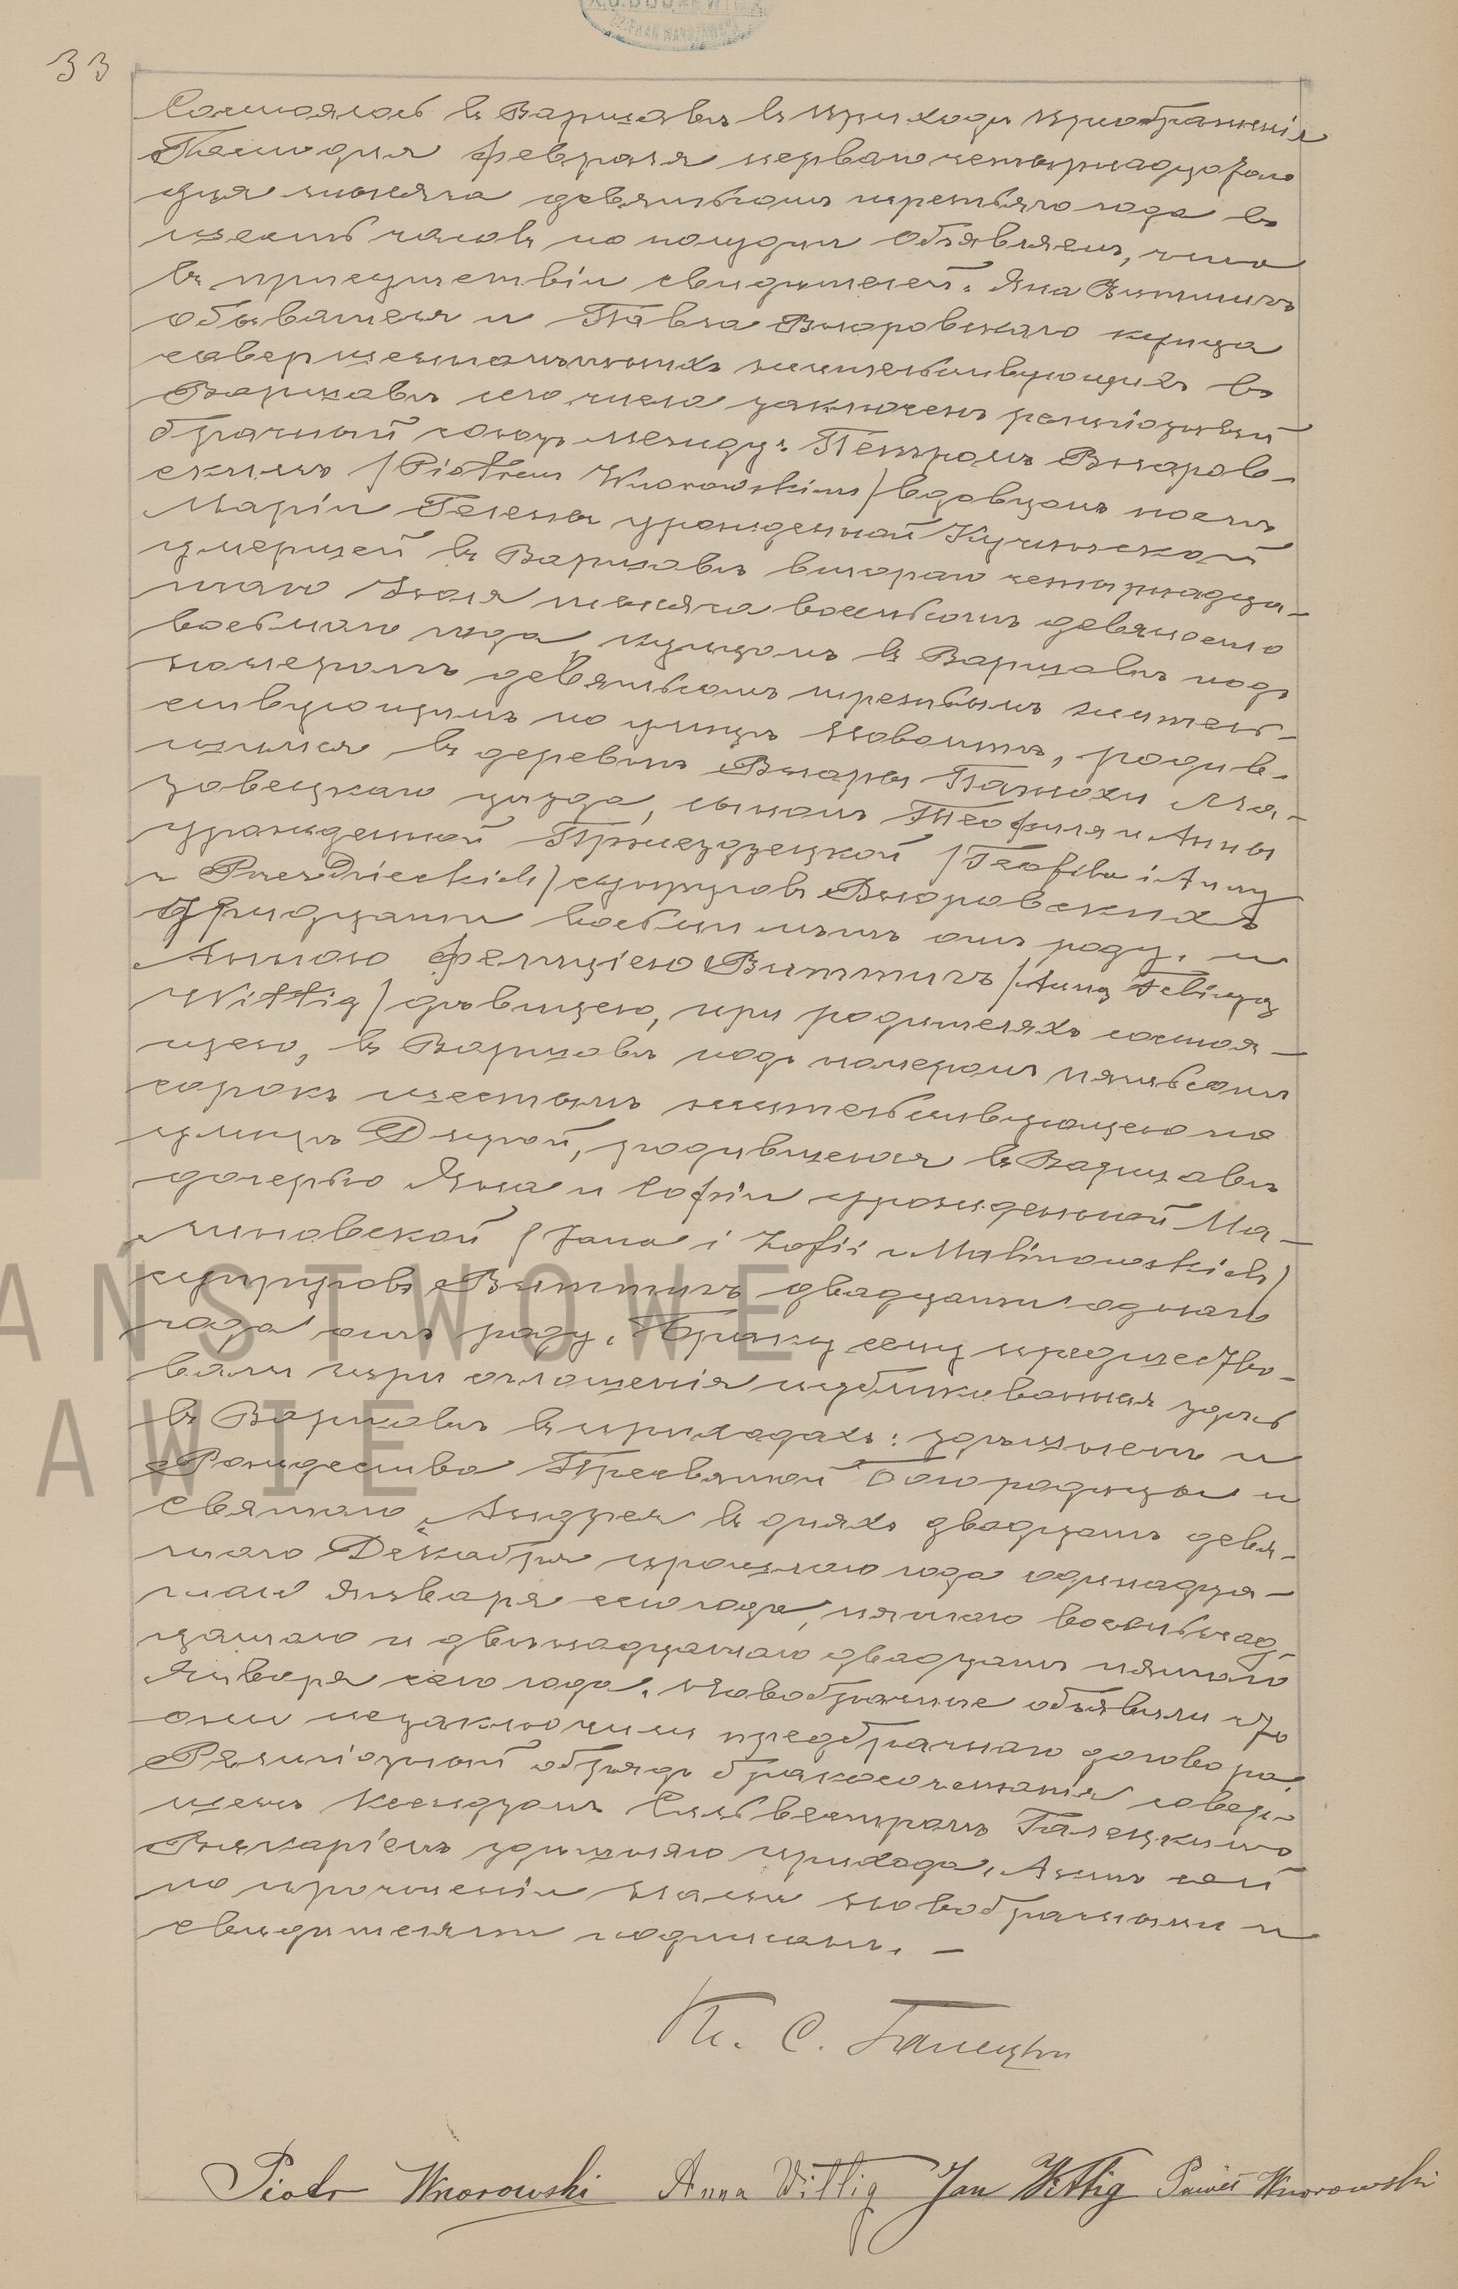 33
Состоялось въ Варшавѣ въ приходѣ преображенія
Господня февраля перваго четырнадцатаго
дня тысяча девятьсотъ третьяго года въ
шесть часовъ по полудни. Объявляемъ, что
въ присутствіи свидѣтелей: Яна Виттигъ
обывателя и Павла Вноровскаго купца
совершеннолѣтнихъ жительствующихъ въ
Варшавѣ сего числа заключенъ религіозный
брачный союзъ между: Петромъ Вноров-
скимъ /Piotrem Wnorowskim/ вдовцомъ послѣ
Маріи Гелены урожденной Кучинской
умершей въ Варшавѣ втораго четырнадца-
таго Іюля тысяча восемьсотъ девяносто
восьмаго года, купцомъ въ Варшавѣ подъ
номеромъ девятьсотъ третьимъ житель-
ствующимъ по улицѣ Новолипкѣ, родив-
шимся въ деревнѣ Вноры Пажохи Ма-
зовецкаго уѣзда, сыномъ Теофиля и Анны
урожденной Пржездзецкой /Teofila i Anny
z Przezdzieckich/ супруговъ Вноровскихъ
тридцати восьми лѣтъ отъ роду, и
Анною Фелиціею Виттигъ /Anną Felicyą
Wittig/ дѣвицею, при родителяхъ состоя-
щею, въ Варшавѣ подъ номеромъ пятьсотъ
сорокъ шестымъ жительствующею по
улицѣ Дикой, родившеюся въ Варшавѣ
дочерью Яна и Софіи урожденной Ма-
линовской /Jana i Zofii z Malinowskich/
супруговъ Виттигъ двадцати одного
года отъ роду. Браку сему предшество-
вали три оглашенія публикованныя здѣсь
въ Варшавѣ въ приходахъ: здѣшнемъ и
Рождества Пресвятой Богородицы и
Святаго Андрея въ дняхъ двадцать девя-
таго Декабря прошлаго года одинадца-
таго Января сего года, пятаго восемнад-
цатаго и двѣнадцатаго двадцать пятаго
Января сего года. Новобрачные объявили что
они незаключили предбрачнаго договора.
Религіозный обрядъ бракосочетанія совер-
шенъ Ксендзомъ Сильвестромъ Галецкимъ
Викаріемъ здѣшняго прихода. Актъ сей
по прочтеніи Нами новобрачными и
свидѣтелями подписанъ. —
Кс. С. Галецкій
Piotr Wnorowski Anna Wittig Jan Wittig Paweł Wnorowski
ANSTWOWE
AWIE